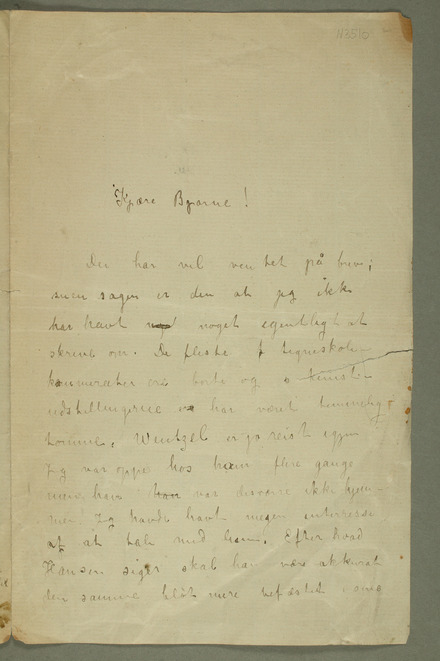 N3510
Kjære Bjarne!
Du har vel ventet på brev;
men sagen er den at jeg ikke
har havt noget egentligt at
skrive om. De fleste f tegneskole
kammerater ere borte og
udstillingerne har været temmelig
tomme. Wentzel er jo reist igjen
Jeg var oppe hos ham flere gange
men han var desværre ikke hjem-
me. Jeg havde havt megen interesse
af at tale med ham. Efter hvad
Hansen siger skal han være akkurat
den samme blot mere